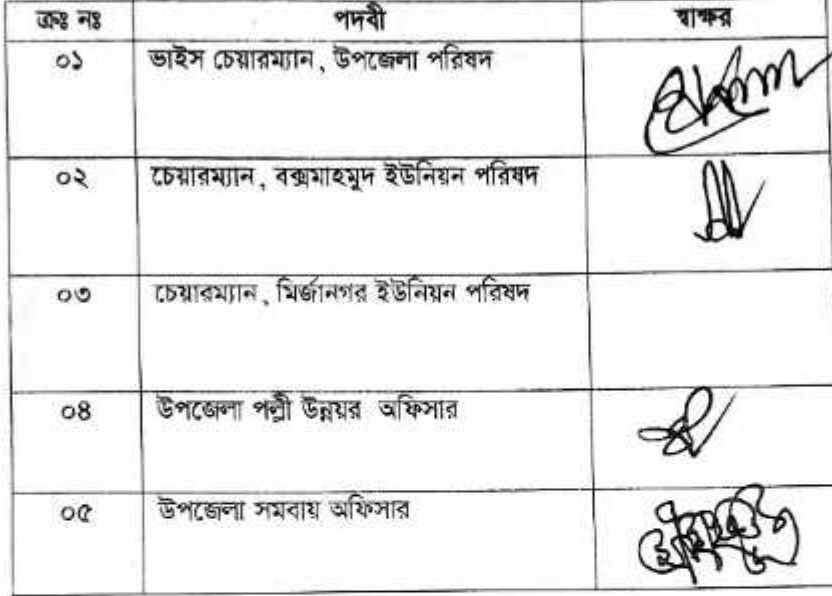 ক্রঃ নঃ পদবী স্বাক্ষর
০১ ভাইস চেয়ারম্যান, উপজেলা পরিষদ
০২ চেয়ারম্যান, বক্সমাহমুদ ইউনিয়ন পরিষদ
০৩ চেয়ারম্যান, মির্জানগর ইউনিয়ন পরিষদ
০৪ উপজেলা পল্লী উন্নয়র অফিসার
০৫ উপজেলা সমবায় অফিসার